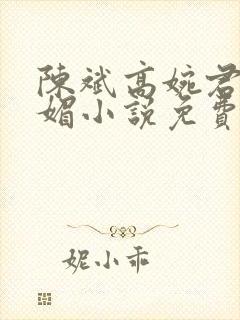 陳斌高婉君
媚小說免費
妮小乖